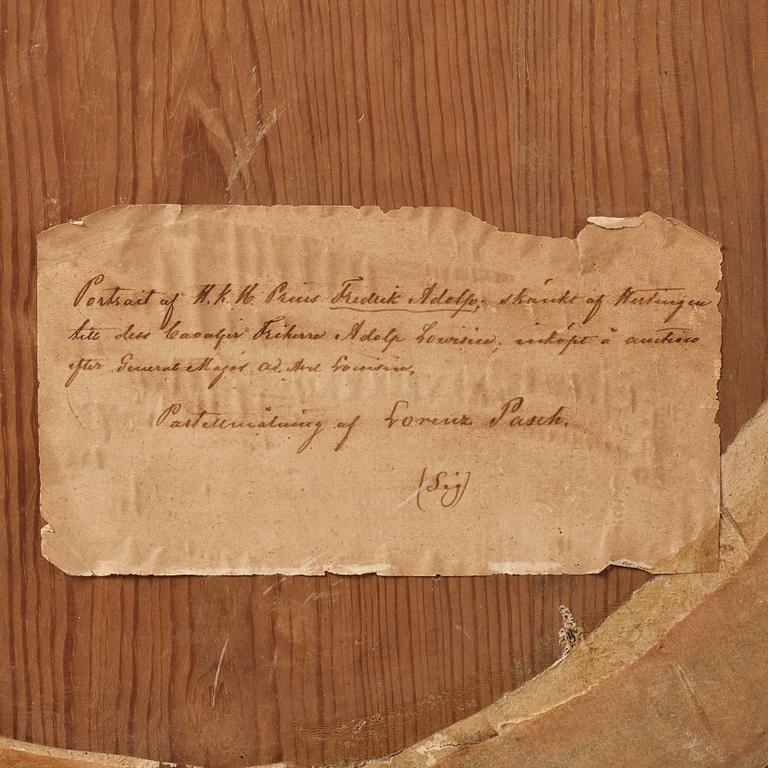 Portrait af H.K.H Prins Fredrik Adolf, skänkt af Hertingen
till dess Cavaljer Friherre Adolf Lowisin, inköpt å auction
efter General Major Ad. Lowisin,
Pastellmålning af Lorenz Pasch.
(Sig)